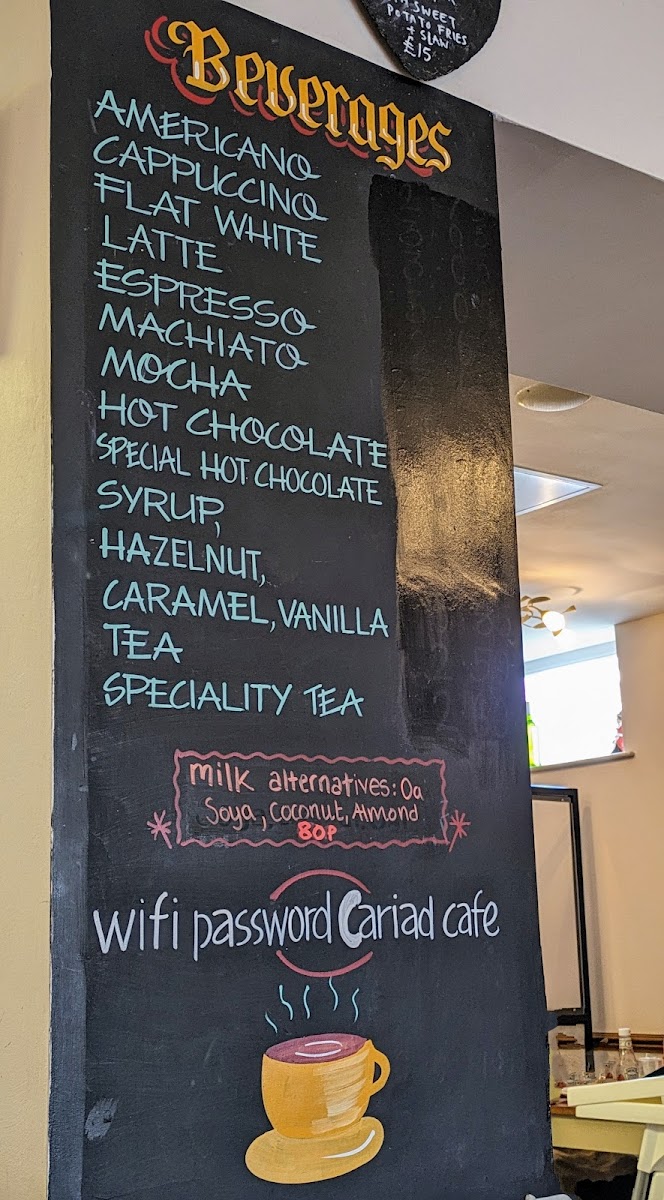 SWEET
POTATO FRIES
+ SLAW
£15
Beverages
AMERICANO
CAPPUCCINO
FLAT WHITE
LATTE
ESPRESSO
MACHIATO
MOCHA
HOT CHOCOLATE
SPECIAL HOT CHOCOLATE
SYRUP,
HAZELNUT,
CARAMEL, VANILLA
TEA
SPECIALITY TEA
milk alternatives: Oa
Soya, Coconut, Almond
80P
wifi password Cariad cafe